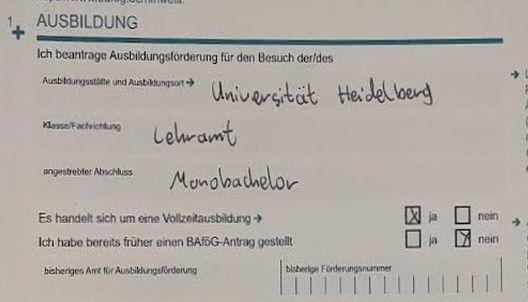 1 AUSBILDUNG
Ich beantrage Ausbildungsförderung für den Besuch der/des
Ausbildungsstätte und Ausbildungsort → Universität Heidelberg
Klasse/Fachrichtung Lehramt
angestrebter Abschluss Monobachelor
Es handelt sich um eine Vollzeitausbildung → ☒ ja ☐ nein
Ich habe bereits früher einen BAföG-Antrag gestellt ☐ ja ☒ nein
bisheriges Amt für Ausbildungsförderung bisherige Förderungsnummer